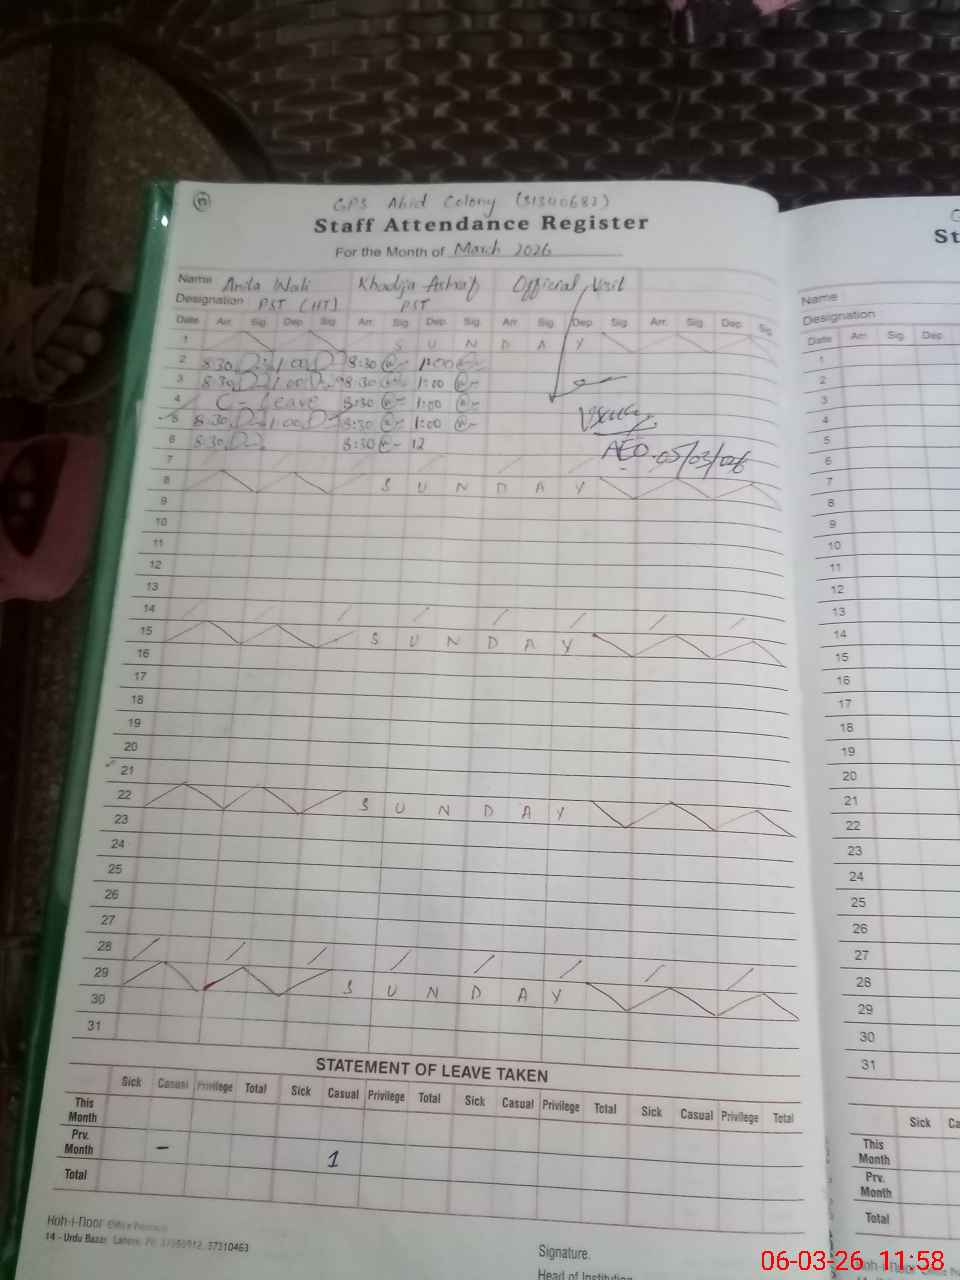 GPS Abid Colony (31340683)
Staff Attendance Register
For the Month of March 2026
Name Anila Wali Khadija Ashraf Official Visit
Designation PST (HT) PST
Date Arr. Sig. Dep. Sig. Arr. Sig. Dep. Sig. Arr. Sig. Dep. Sig. Arr. Sig. Dep. Sig.
1 S U N D A Y
2 8:30 1:00 8:30 1:00
3 8:30 1:00 8:30 1:00
4 C-Leave 8:30 1:00
5 8:30 1:00 8:30 1:00
AEO 05/03/026
6 8:30 8:30 12
7
8 S U N D A Y
9
10
11
12
13
14
15 S U N D A Y
16
17
18
19
20
21
22 S U N D A Y
23
24
25
26
27
28
29 S U N D A Y
30
31
STATEMENT OF LEAVE TAKEN
Sick Casual Privilege Total Sick Casual Privilege Total Sick Casual Privilege Total Sick Casual Privilege Total
This Month
Prv. Month - 1
Total
Koh-i-noor
14 - Urdu Bazar, Lahore. 37310463
Signature.
Head of Institution
St
Name
Designation
Date Arr. Sig. Dep.
1
2
3
4
5
6
7
8
9
10
11
12
13
14
15
16
17
18
19
20
21
22
23
24
25
26
27
28
29
30
31
Sick Ca
This Month
Prv. Month
Total
06-03-26 11:58